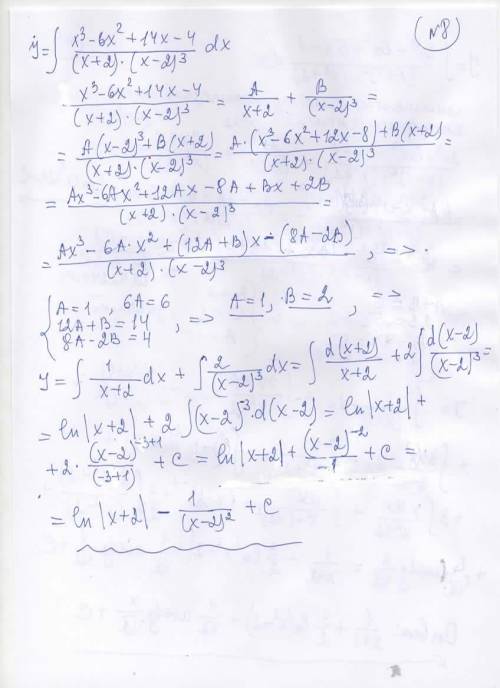 N8
y = ∫ (x³ - 6x² + 14x - 4) / ((x+2)·(x-2)³) dx
(x³ - 6x² + 14x - 4) / ((x+2)·(x-2)³) = A/(x+2) + B/(x-2)³ =
= (A(x-2)³ + B(x+2)) / ((x+2)·(x-2)³) = (A·(x³ - 6x² + 12x - 8) + B(x+2)) / ((x+2)·(x-2)³) =
= (Ax³ - 6Ax² + 12Ax - 8A + Bx + 2B) / ((x+2)·(x-2)³) =
= (Ax³ - 6A·x² + (12A+B)x - (8A-2B)) / ((x+2)·(x-2)³) , =>
{ A = 1 , 6A = 6
12A + B = 14 , => A = 1, B = 2 , =>
8A - 2B = 4
y = ∫ 1/(x+2) dx + ∫ 2/(x-2)³ dx = ∫ d(x+2)/(x+2) + 2 ∫ d(x-2)/(x-2)³ =
= ln|x+2| + 2 ∫ (x-2)⁻³·d(x-2) = ln|x+2| +
+ 2 · (x-2)⁻³⁺¹/(-3+1) + C = ln|x+2| + (x-2)⁻²/-1 + C =
= ln|x+2| - 1/(x-2)² + C